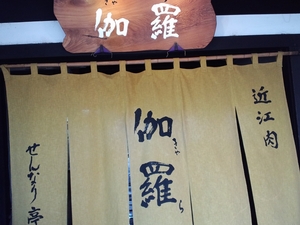 伽羅
きゃ
近江肉
伽羅
きゃら
せんなり亭